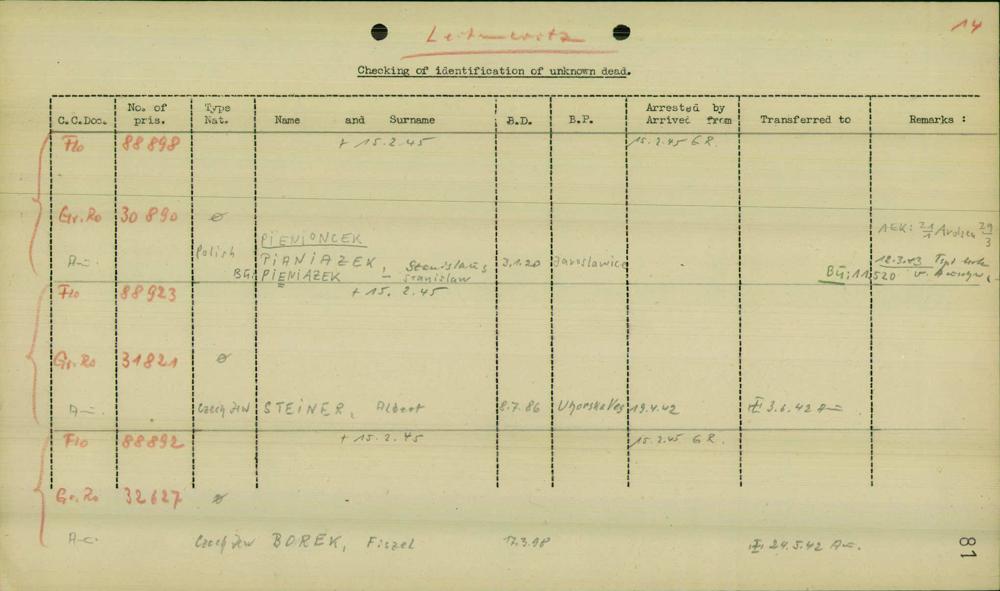 Leitmeritz
14
Checking of identification of unknown dead.
C.C.Doc. No. of pris. Type Nat. Name and Surname B.D. B.P. Arrested by Arrived from Transferred to Remarks :
Flo 88898 + 15.2.45 15.2.45 G R.
Gr.Ro 30890 ø
PIENIONCEK
Polish PIANIAZEK, Stanislaus 3.1.20 Jaroslawice 12.3.43
BÜ; PIENIAZEK Stanislaw BÜ; 11520
Flo 88923 + 15. 2.45
Gr.Ro 31821 ø
Czech Jew STEINER, Albert 8.7.86 Uhorska Ves 19.4.42 3.6.42
Flo 88892 + 15.2.45 15.2.45 G R.
Gr.Ro 32627 ø
Czech Jew BOREK, Fiszel 17.3.98 24.5.42
81